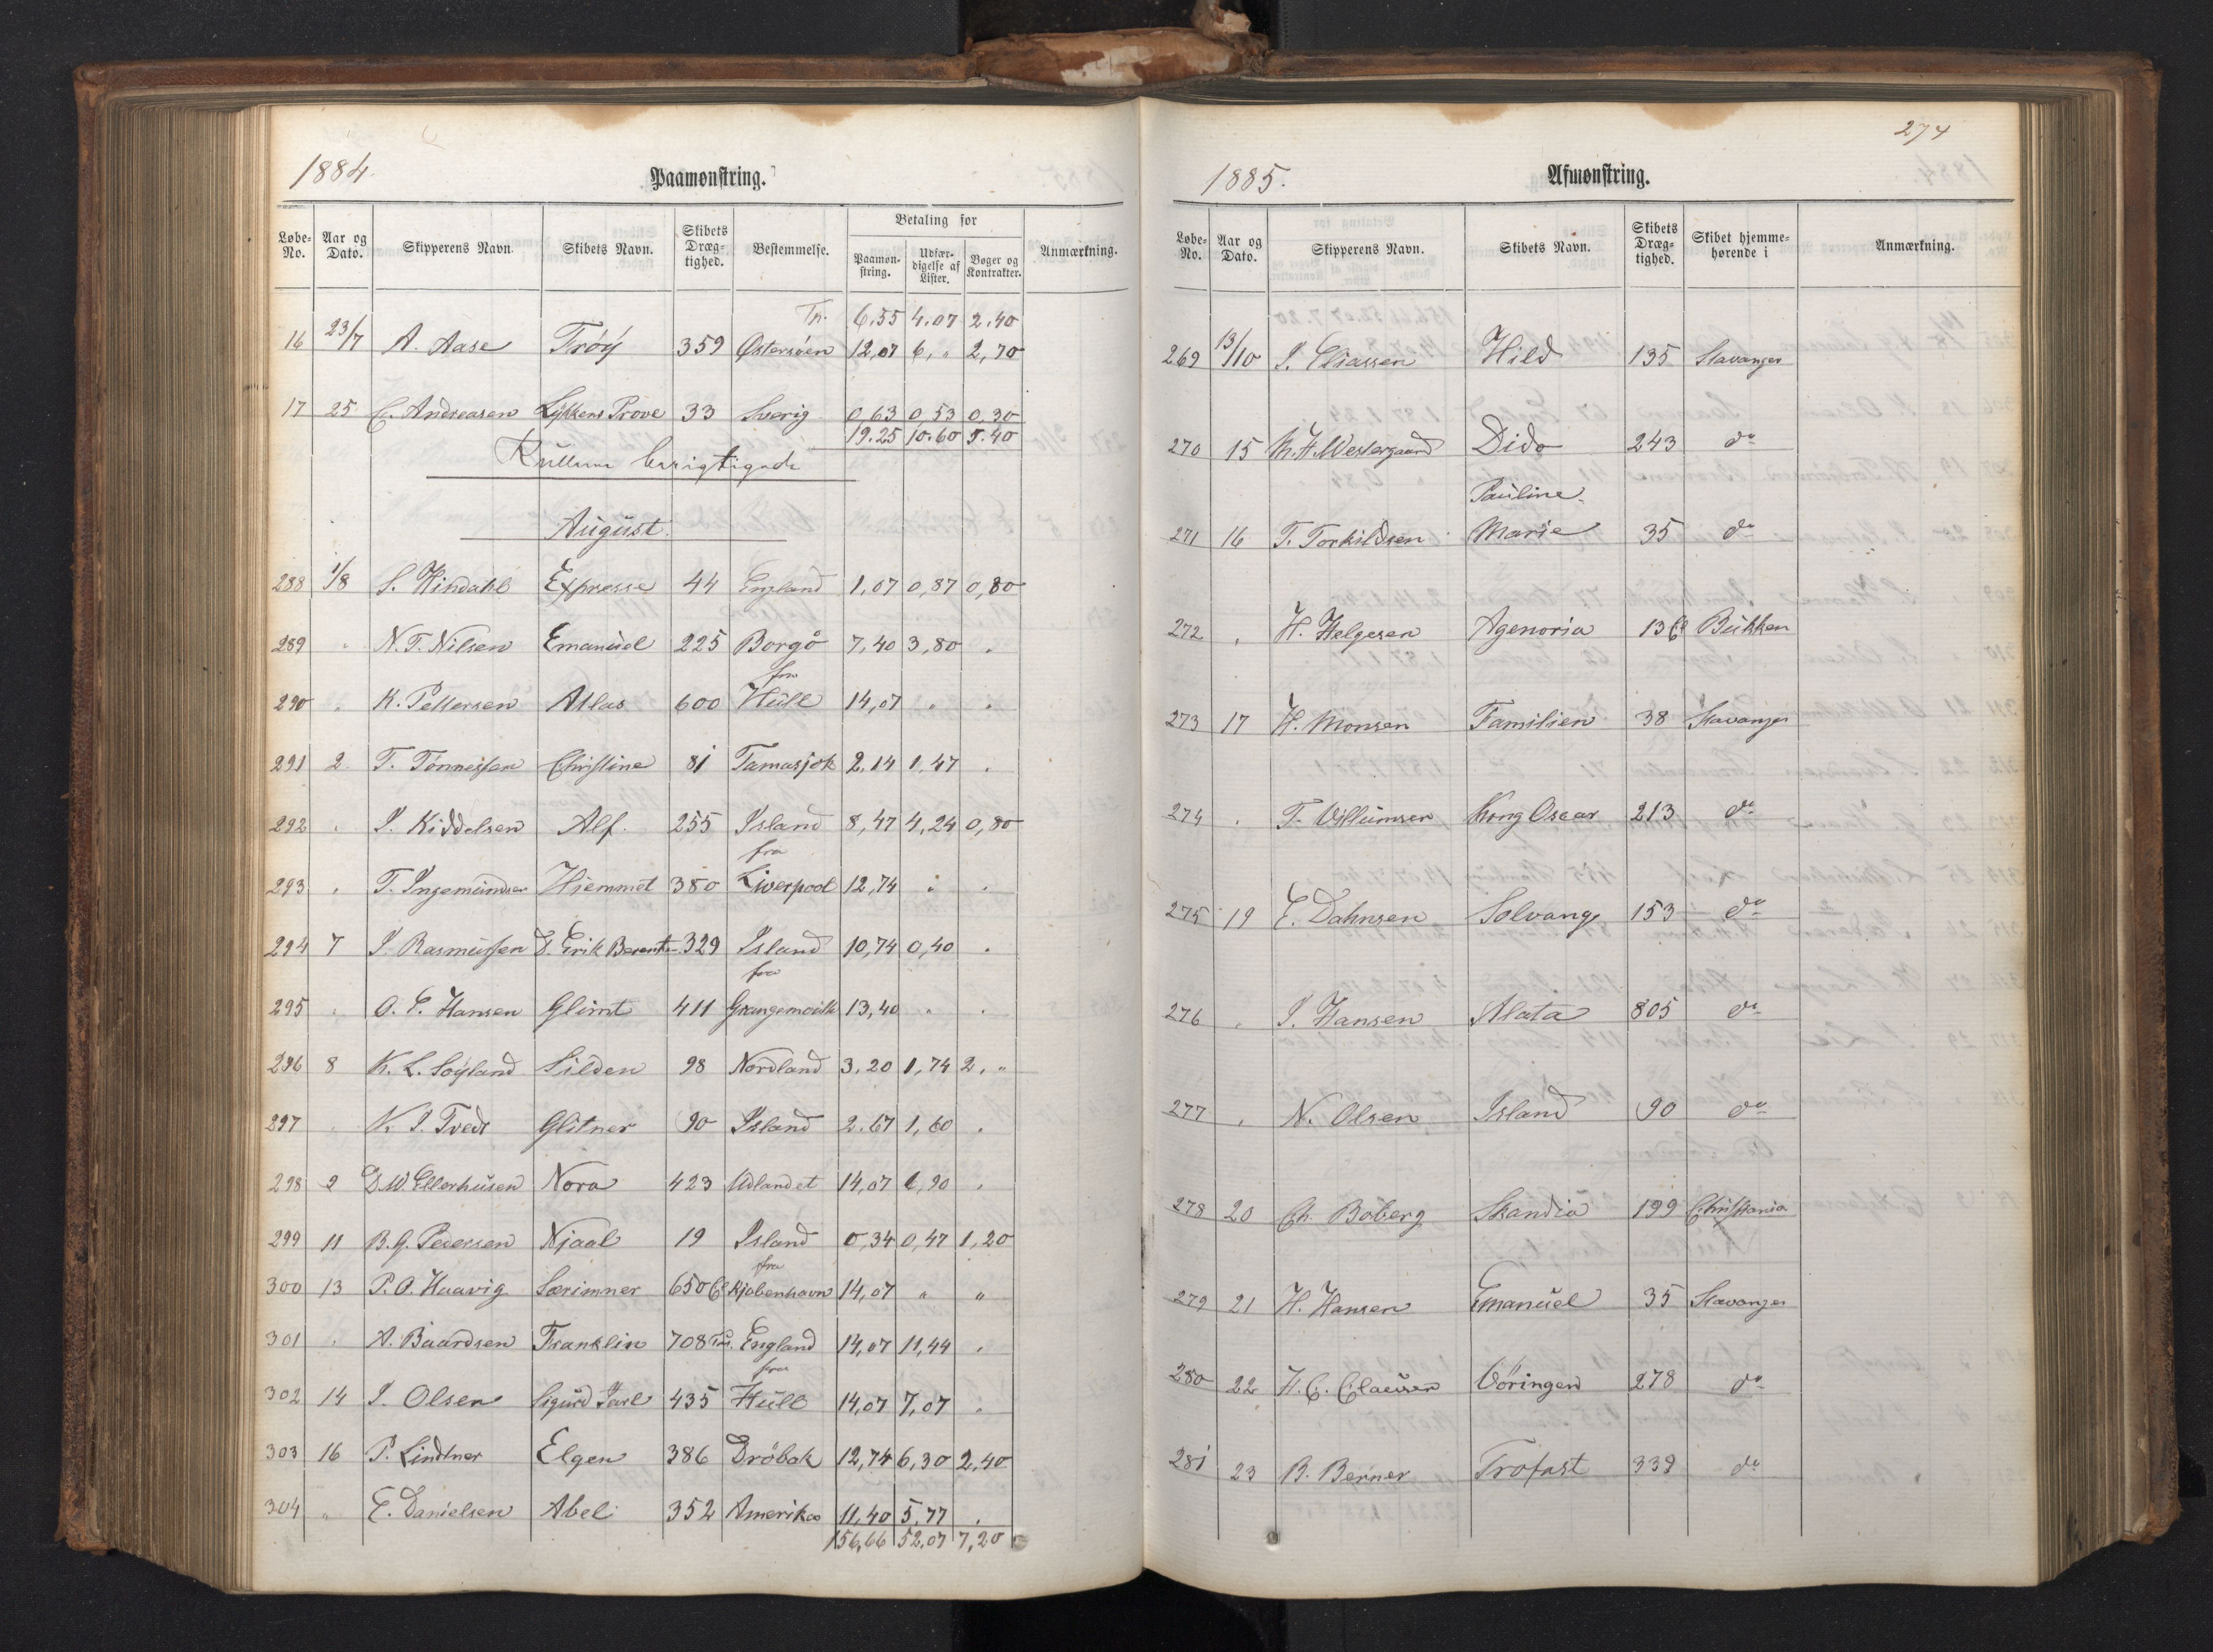 1884.
Paamønstring.
Løbe-No. Aar og Dato. Skipperens Navn. Skibets Navn. Skibets Dræg-tighed. Bestemmelse. Betaling for Paamøn-string. Udfær-digelse af Lister. Bøger og Kontrakter. Anmærkning.
Tr. 6.55 4.07 2.40
16 23/7 A. Aase Trøÿ 359 Østersøen 12,07 6, " 2,70
17 25 C. Andreasen Lÿkkens Prøve 33 Sverig 0,63 0,53 0,30
19.25 10.60 5.40
Rullerne berigtigede
August.
288 1/8 S. Hindahl Expresse 44 England 1,07 0,87 0,80
289 " N. T. Nilsen Emanuel 225 Borgå 7,40 3,80 "
290 " K. Pettersen Atlas 600 fra Hull 14,07 " "
291 2 T. Tønnessen Christine 81 Tamasjok 2,14 1,47 "
292 " J. Kiddelsen Alf. 255 Island 8,47 4,24 0,80
293 " T. Ingemundsen Hjemmet 380 fra Liverpool 12,74 " "
294 7 J. Rasmussen D. Erik Berentsen 329 Island 10,74 0,40 "
295 " O. E. Hansen Glimt 411 fra Grangemouth 13,40 " "
296 8 K. L. Søÿland Silden 98 Nordland 3,20 1,74 2, "
297 " K. J. Tvedt Glitner 90 Island 2.67 1,60 "
298 9 D. W. Ellerhusen Nora 423 Udlandet 14,07 6,90 "
299 11 B. G. Pedersen Njaal 19 Island 0,34 0,47 1,20
300 13 P. O. Haavig Særimner 650 Cl fra Kjøbenhavn 14,07 " "
301 " A. Baardsen Franklin 708 Ts. England 14,07 11,44 "
302 14 J. Olsen Sigurd Jarl 435 fra Hull 14,07 7,07 "
303 16 P. Lindtner Elgen 386 Drøbak 12,74 6,30 2,40
304 " E. Danielsen Abel 352 Amerika 11,40 5,77 "
156,66 52,07 7,20
274
1885.
Afmønstring.
Løbe-No. Aar og Dato. Skipperens Navn. Skibets Navn. Skibets Dræg-tighed. Skibet hjemme-hørende i Anmærkning.
269 13/10 J. Eliassen Hild 135 Stavanger
270 15 M. H. Westergaard Dido 243 do
271 16 T. Torkildsen Pauline Marie 35 do
272 " H. Helgesen Agenoria 136 Bukken
273 17 H. Monsen Familien 38 Stavanger
274 " T. Villumsen Kong Oscar 213 do
275 19 E. Dahnsen Solvang 153 do
276 " J. Hansen Alata 805 do
277 " N. Olsen Island 90 do
278 20 Ch. Boberg Skandia 199 Christiania
279 21 H. Hansen Emanuel 35 Stavanger
280 22 H. C. Claussen Vøringen 278 do
281 23 B. Berner Trofast 339 do